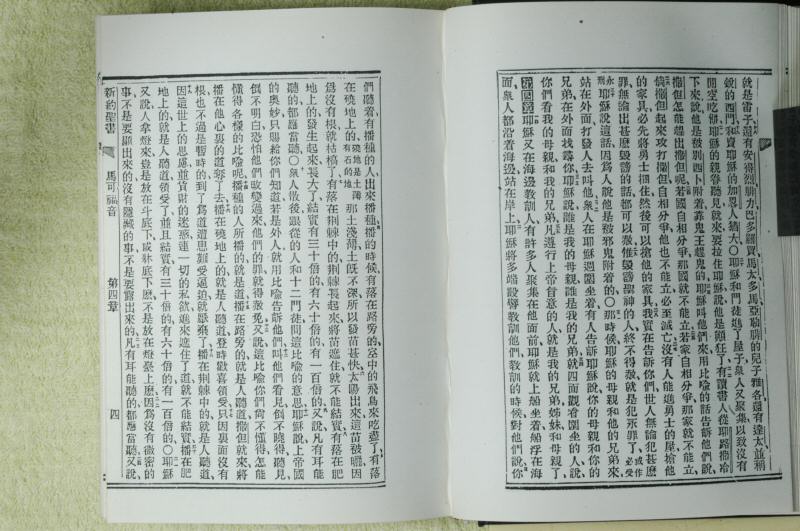 就是雷子還有安得烈腓力巴多羅買馬太多馬亞勒腓的兒子雅各還有達太並稱
銳的西門和賣耶穌的加畧人猶大○耶穌和門徒進了屋子衆人又聚集以致沒有
閒空吃飯耶穌的親眷聽見就來要拉住耶穌說他是顚狂了有讀書人從耶路撒冷
下來說他是被別西卜附着靠鬼王趕鬼的耶穌叫他們來用比喻的話告訴他們說
撒但怎能趕出撒但呢若國自相分爭那國就不能立若家自相分爭那家就不能立
倘撒但起來攻打撒但自相分爭他也不能立必至滅亡沒有人能進勇士的屋搶他
的家具必先將勇士捆住然後可以搶他的家具我實在告訴你們世人無論犯甚麽
罪無論出甚麽毁謗的話都可以赦惟毁謗聖神的人終不得赦就是犯永罪了或作必受
永刑耶穌說這話因爲人說他是被邪鬼附着的○那時候耶穌的母親和他的兄弟來
站在外面打發人去叫他衆人在耶穌週圍坐着有人告訴耶穌說你的母親和你的
兄弟在外面找尋你耶穌說誰是我的母親誰是我的兄弟就四面觀看圍坐的人說
你們看我的母親和我的兄弟凡遵行上帝旨意的人就是我的兄弟姊妹和母親了
第四章耶穌又在海邊敎訓人有許多人聚集在他面前耶穌就上船坐着船浮在海
面衆人都沿着海邊站在岸上耶穌將多端設譬敎訓他們敎訓的時候對他們說你
們聽着有播種的人出來播種播的時候有落在路旁的空中的飛鳥來吃盡了有落
在磽地上的磽地是土薄有石的地那土淺薄土旣不深所以發苗甚快太陽出來這苗被曬因
爲沒有根就枯槁了有落在荆棘中的荆棘長起來將苗遮住就不能結實有落在肥
地上的發生起來長大了結實有三十倍的有六十倍的有一百倍的又說凡有耳能
聽的都應當聽○衆人散後跟從的人和十二門徒問這比喻的意思耶穌說上帝國
的奧妙只賜給你們知道若是外人就用比喻告訴他們叫他們看見倒不曉得聽見
倒不明白恐怕他們改變過來他們的罪就得赦免又說這比喻你們尙不懂得怎能
懂得各樣的比喻呢播種的人所播的就是道播在路旁的就是人聽道撒但就來將
播在他心裏的道奪了去播在磽地上的就是人聽道登時歡喜領受只因裏面沒有
根也不過是暫時的到了爲道遭患難受逼迫就厭棄了播在荆棘中的就是人聽道
因這世上的思慮並貨財的迷惑連一切的私欲進來遮住了道就不能結實播在肥
地上的就是人聽道領受了並且結實有三十倍的有六十倍的有一百倍的○耶穌
又說人拿燈來豈是放在斗底下或牀底下麽不是放在燈臺上麽因爲沒有微密的
事不是要顯出來的沒有隱藏的事不是要露出來的凡有耳能聽的都應當聽又說
新約聖書 馬可福音 第四章 四